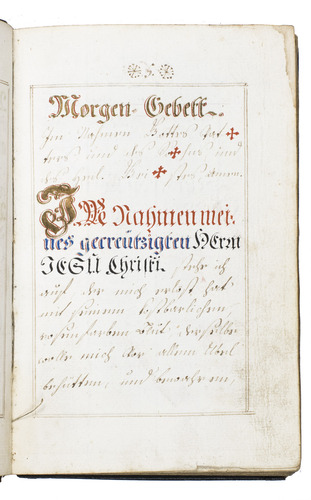 5.
Morgen-Gebett.
Im Nahmen Gottes Vat✠
ters und des So✠hns und
des heil. Gei✠stes amen.
IM Nahmen mei-
nes gecreützigten HErrn
JESU Christi. stehe ich
auf der mich erlöst hat
mit seinem kostbarlichen,
rosenfarben Blut, derselbe
wolle mich vor allem Übel
behütten, und bewahren,